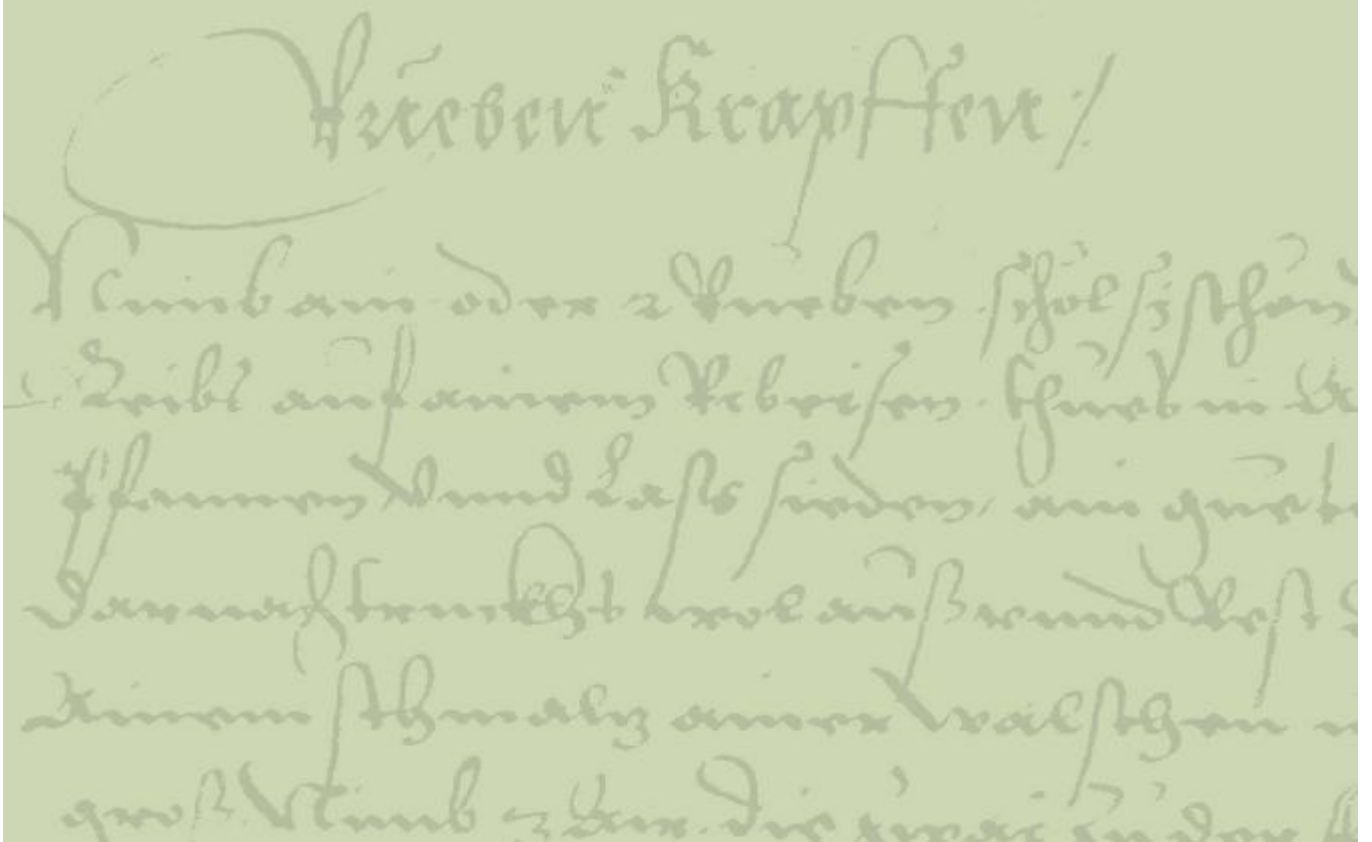 Rueben Krapffen /
Nimb ain oder 2 Rueben schöl sÿ schön
Reibs auf ainem Ribeisen thues in
Pfannen Vnnd Lass sieden, ain guete
Darnach truckhs wol auß vnnd Resst
Ainem schmalz ainer Walschen
groß Nimb 2 Air die